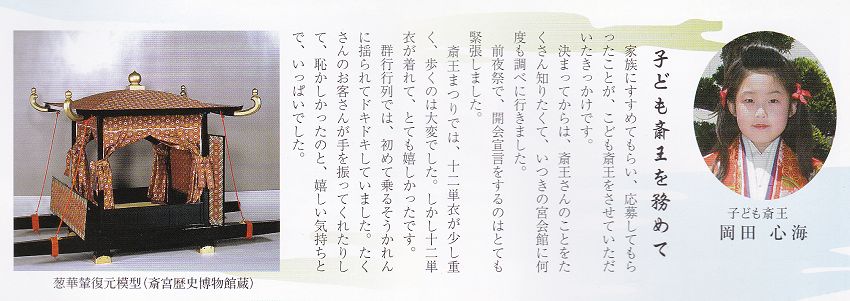 子ども斎王を務めて
家族にすすめてもらい、応募してもら
ったことが、こども斎王をさせていただ
いたきっかけです。
決まってからは、斎王さんのことをた
くさん知りたくて、いつきの宮会館に何
度も調べに行きました。
前夜祭で、開会宣言をするのはとても
緊張しました。
斎王まつりでは、十二単衣が少し重
く、歩くのは大変でした。しかし十二単
衣が着れて、とても嬉しかったです。
群行行列では、初めて乗るそうかれん
に揺られてドキドキしていました。たく
さんのお客さんが手を振ってくれたりし
て、恥かしかったのと、嬉しい気持ちと
で、いっぱいでした。
子ども斎王
岡田 心海
葱華輦復元模型(斎宮歴史博物館蔵)